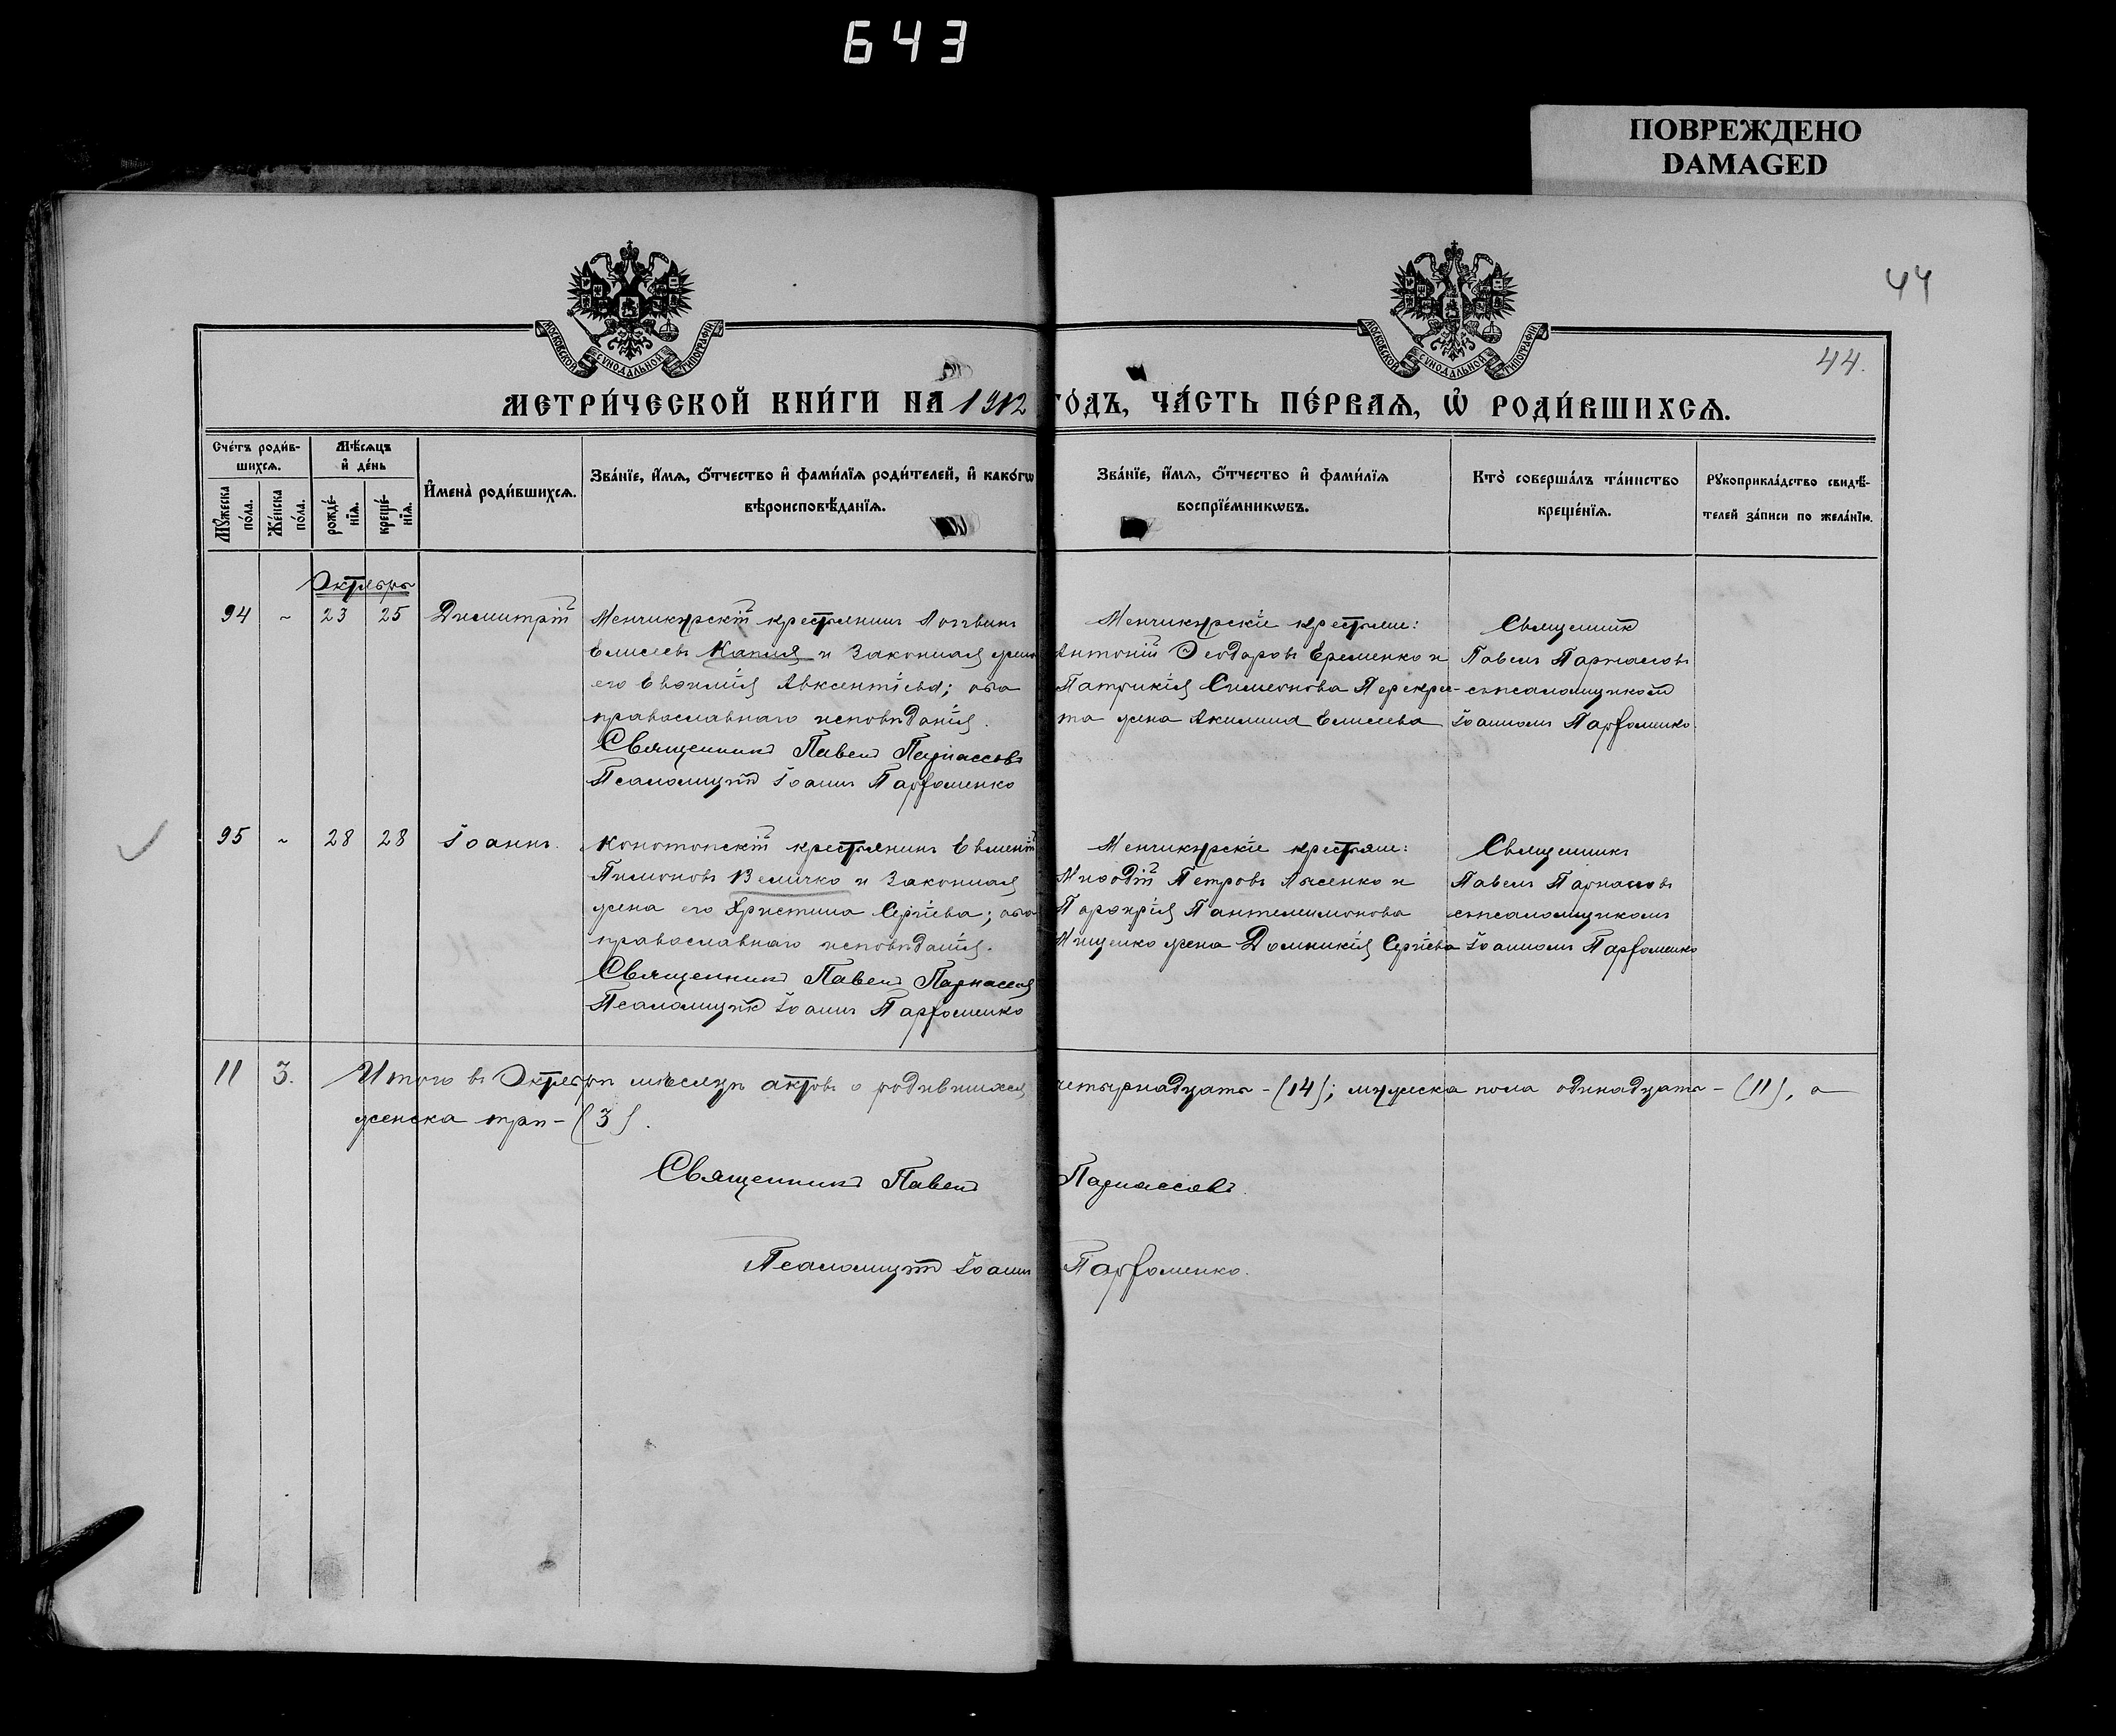 643
ПОВРЕЖДЕНО
DAMAGED
44
44.
МОСКОВСКОЙ СѴНОДАЛЬНОЙ ТИПОГРАФІИ
МОСКОВСКОЙ СѴНОДАЛЬНОЙ ТИПОГРАФІИ
МЕТРИ́ЧЕСКОЙ КНИ́ГИ НА 1912 ГО́ДЪ, ЧА́СТЬ ПЕ́РВАѦ, Ѡ РОДИ́ВШИХСѦ.
Сче́тъ роди́в-
шихсѧ.
Мꙋ́жеска по́ла.
Же́нска по́ла.
Мѣ́сѧцъ
и҆ де́нь
рожде́-
нїѧ.
креще́-
нїѧ.
И҆мена̀ роди́вшихсѧ.
Зва́нїе, и҆́мѧ, ѻ҆́тчество и҆ фами́лїѧ роди́телей, и҆ како́гѡ
вѣроисповѣ́данїѧ.
Зва́нїе, и҆́мѧ, ѻ҆́тчество и҆ фами́лїѧ
воспрїе́мникѡвъ.
Кто̀ соверша́лъ та́инство
креще́нїѧ.
Рꙋкоприкла́дство свидѣ́-
телей за́писи по жела́нїю.
Октябрь
94 ~ 23 25 Димитрій Менчикурскій крестьянинъ Логвинъ
Елисеевъ Капля и законная жена
его Евфимія Авксентіева; оба
православнаго исповѣданія.
Священникъ Павелъ Парнассовъ
Псаломщикъ Іоаннъ Парфоменко
Менчикурскіе крестьяне:
Антоній Ѳеодоровъ Еременко и
Патрикія Симеонова Перекрес-
та жена Акилина Елисеева
Священникъ
Павелъ Парнассовъ
съ псаломщикомъ
Іоанномъ Парфоменко.
95 ~ 28 28 Іоаннъ. Конотопскій крестьянинъ Евменій
Пимоновъ Величко и законная
жена его Христина Сергіева; оба
православнаго исповѣданія.
Священникъ Павелъ Парнассовъ
Псаломщикъ Іоаннъ Парфоменко
Менчикурскіе крестьяне:
Меѳодій Петровъ Лысенко и
Порфирія Пантелеимонова
Мищенко жена Домникія Сергіева
Священникъ
Павелъ Парнассовъ
съ псаломщикомъ
Іоанномъ Парфоменко
11 3. Итого въ Октябрѣ мѣсяцѣ актовъ о родившихся четырнадцать - (14); мужеска пола одинадцать - (11), а
женска три - (3).
Священникъ Павелъ Парнассовъ.
Псаломщикъ Іоаннъ Парфоменко.